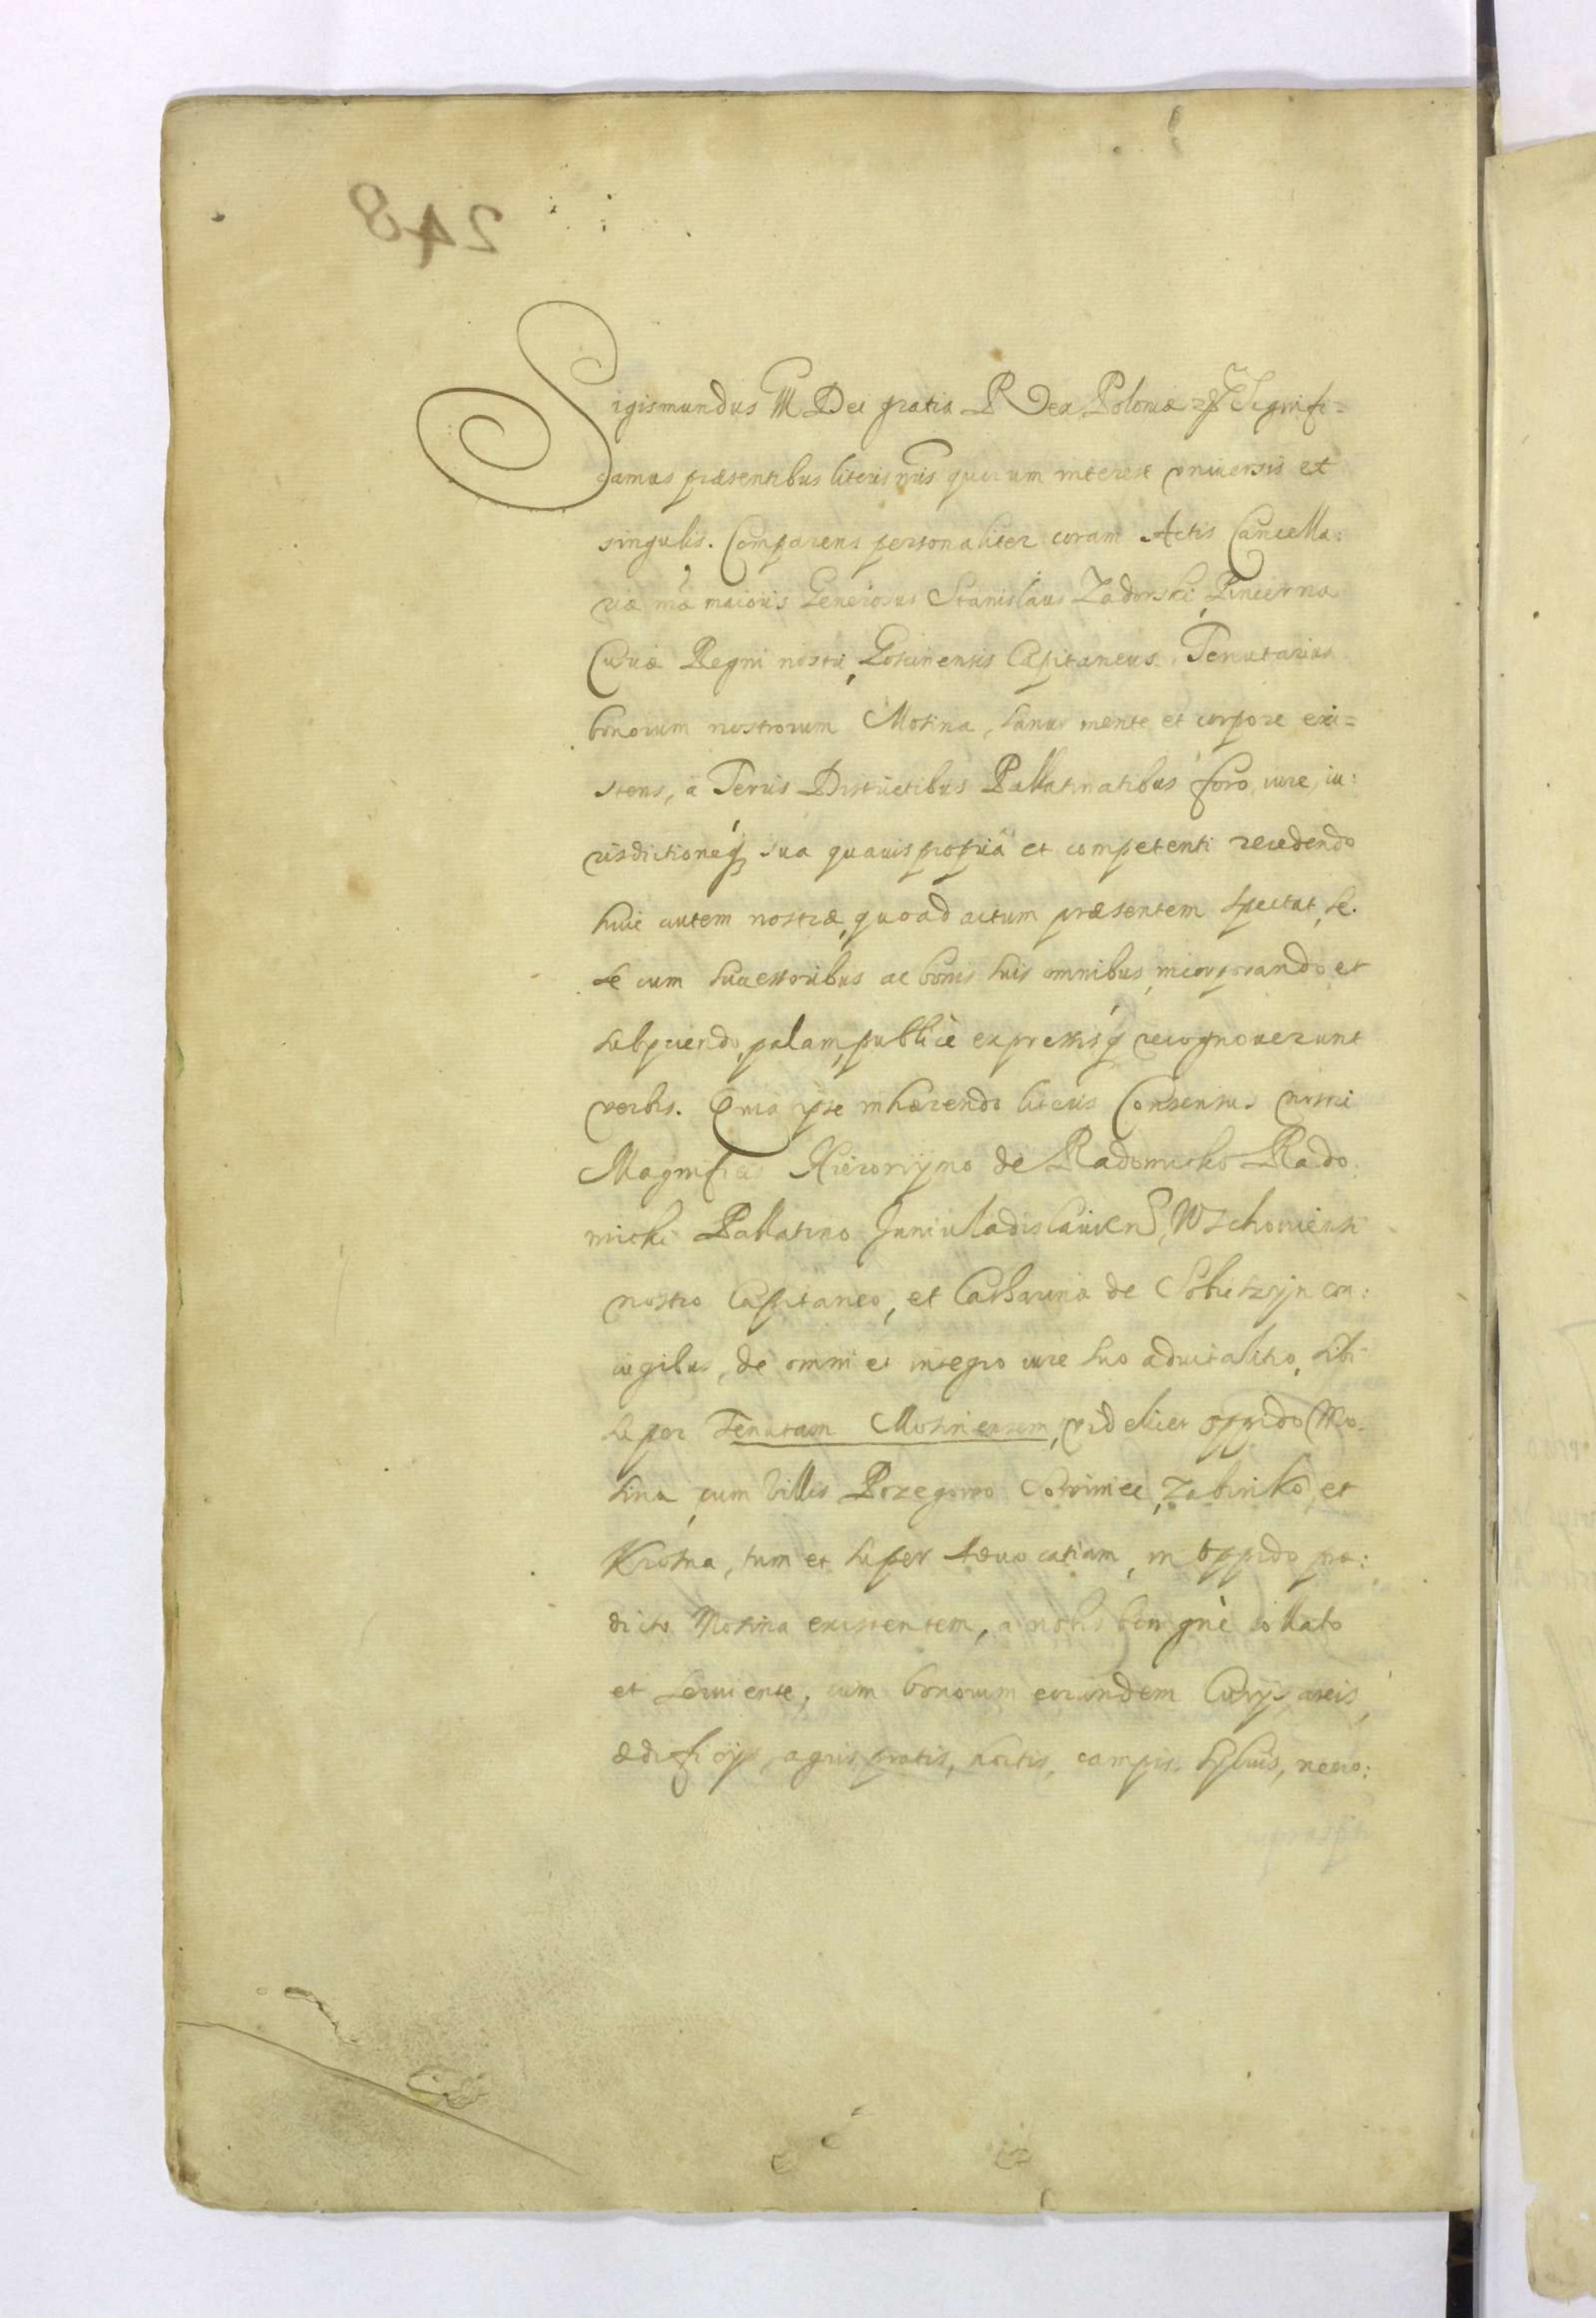 248
Sigismundus III Dei gratia Rex Poloniæ &c Signifi=
camus præsentibus literis nris quorum interest vniuersis et
singulis. Comparens personaliter coram Actis Cancella:
riæ næ maioris Generosus Stanislaus Zadorski, Pincerna
Curiæ Regni nostri, Gostinensis Capitaneus Tenutarius
bonorum nostrorum Mosina, sanus mente et corpore exi=
stens, a Terris Districtibus Pallatinatibus foro, iure, iu:
risdictioneq sua quauis propria et competenti recedendo
huic autem nostræ, quo ad actum præsentem spectat, se.
se cum successoribus ac bonis suis omnibus, incorporando et
subyciendo, palam, publicè expressisq recognouerunt
verbis. Quia ipse inhærendo literis Consensus nostri
Magnificis Hieronymo de Radomicko Rado
micki Pallatino Juniuladislauien, Wschouiensi
nostro Capitaneo, et Catharina de con:
iugibus, de omni et integro iure suo aduitalitio, sibi
super Tenutam Mosinensem, videlicet oppido Mo:
sina, cum villis Przegowo Sowiniec, Zabinko, et
Krosna, tum et super aduocatiam, in oppido præ:
dicto Mosina existentem, a nobis benignè collato
et seruiente, cum bonorum eorundem Curÿs, areis,
ædificÿs, agris, pratis, hortis, campis, syluis, nemo: